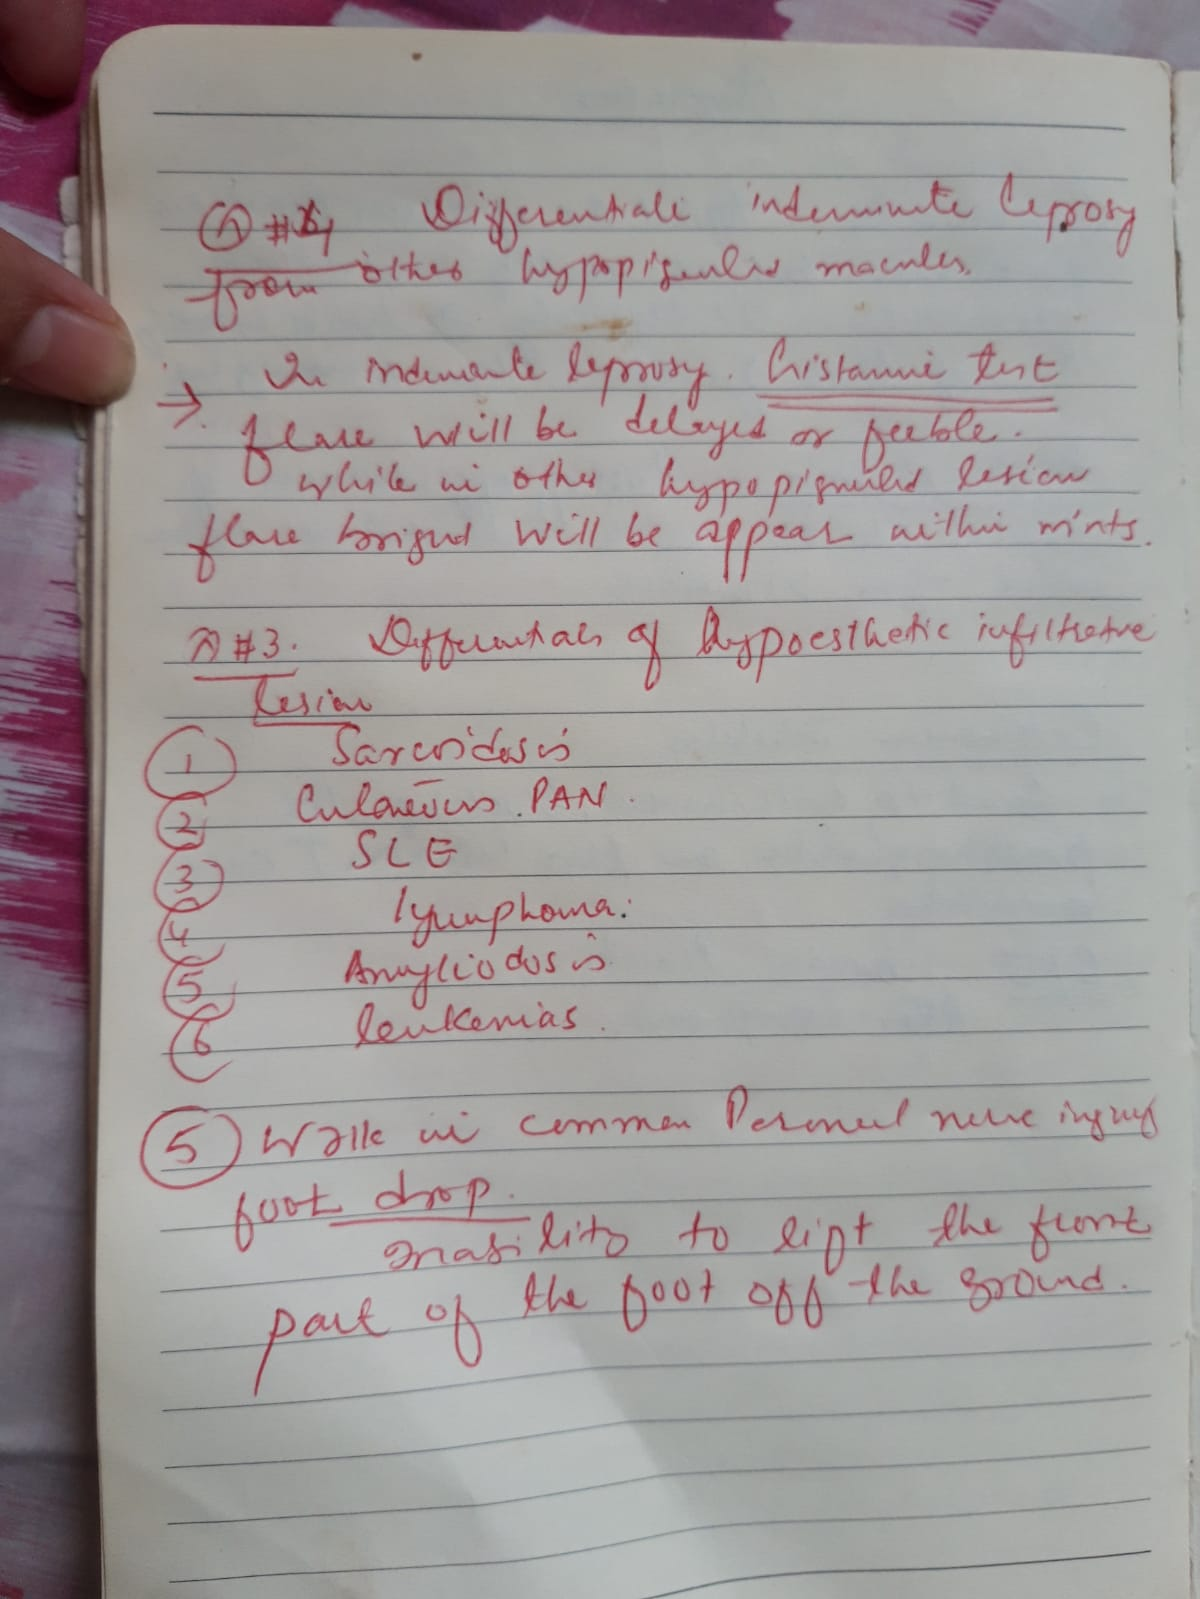 Q #4 Differentiate indeterminate leprosy
from other hypopigmented macules.
→ In indeterminate leprosy. histamine test
flare will be delayed or feeble.
while in other hypopigmented lesion
flare bright will be appear within mints.
Q #3. Differentials of hypoesthetic infiltrative
lesion
1 Sarcoidosis
2 Cutaneous PAN.
3 SLE
4 lymphoma.
5 Amyliodosis
6 leukemias.
5 Walk in common Peroneal nerve injury
foot drop.
Inability to lift the front
part of the foot off the ground.